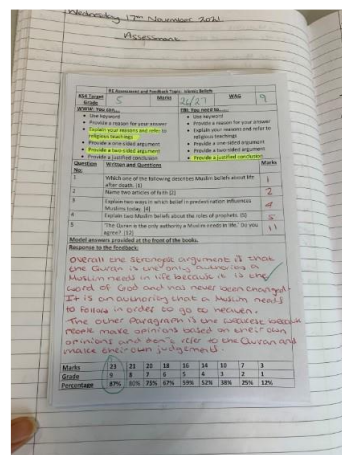 Wednesday 17th November 2021.
Assessment
RS Assessment and Feedback Topic: Islamic Beliefs
KS4 Target Grade 5 Marks 26/27 WAG 9
WWW: You can... EBI: You need to...
Use keyword Use keyword
Provide a reason for your answer Provide a reason for your answer
Explain your reasons and refer to religious teachings Explain your reasons and refer to religious teachings
Provide a one sided argument Provide a one sided argument
Provide a two sided argument Provide a two sided argument
Provide a justified conclusion Provide a justified conclusion
Question No: Written and Questions Marks
1 Which one of the following describes Muslim beliefs about life after death. [1] 1
2 Name two articles of faith [2] 2
3 Explain two ways in which belief in predestination influences Muslims today. [4] 4
4 Explain two Muslim beliefs about the roles of prophets. [5] 5
5 'The Quran is the only authority a Muslim needs in life.' Do you agree?. [12] 11
Model answers provided at the front of the books.
Response to the feedback:
Overall the strongest argument is that
the Quran is the only authority a
Muslim needs in life because it is the
word of God and has never been changed.
It is an authority that a Muslim needs
to follow in order to go to heaven.
The other Paragraph is the weakest because
People make opinions based on their own
opinions and don't refer to the Quran and
make their own judgements.
Marks 23 21 20 18 16 14 10 7 3
Grade 9 8 7 6 5 4 3 2 1
Percentage 87% 80% 73% 67% 59% 52% 38% 25% 12%